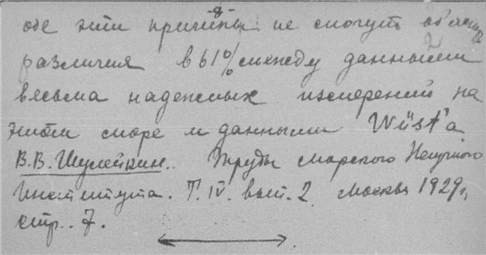 обе эти причины не смогут объяснить
различия в 61% между данными
весьма надежных измерений на
этом море и данными Wüst'а
В.В. Шулейкин. Труды морского Научного
Института. Т. IV. вып. 2. Москва 1929г.
стр. 7.